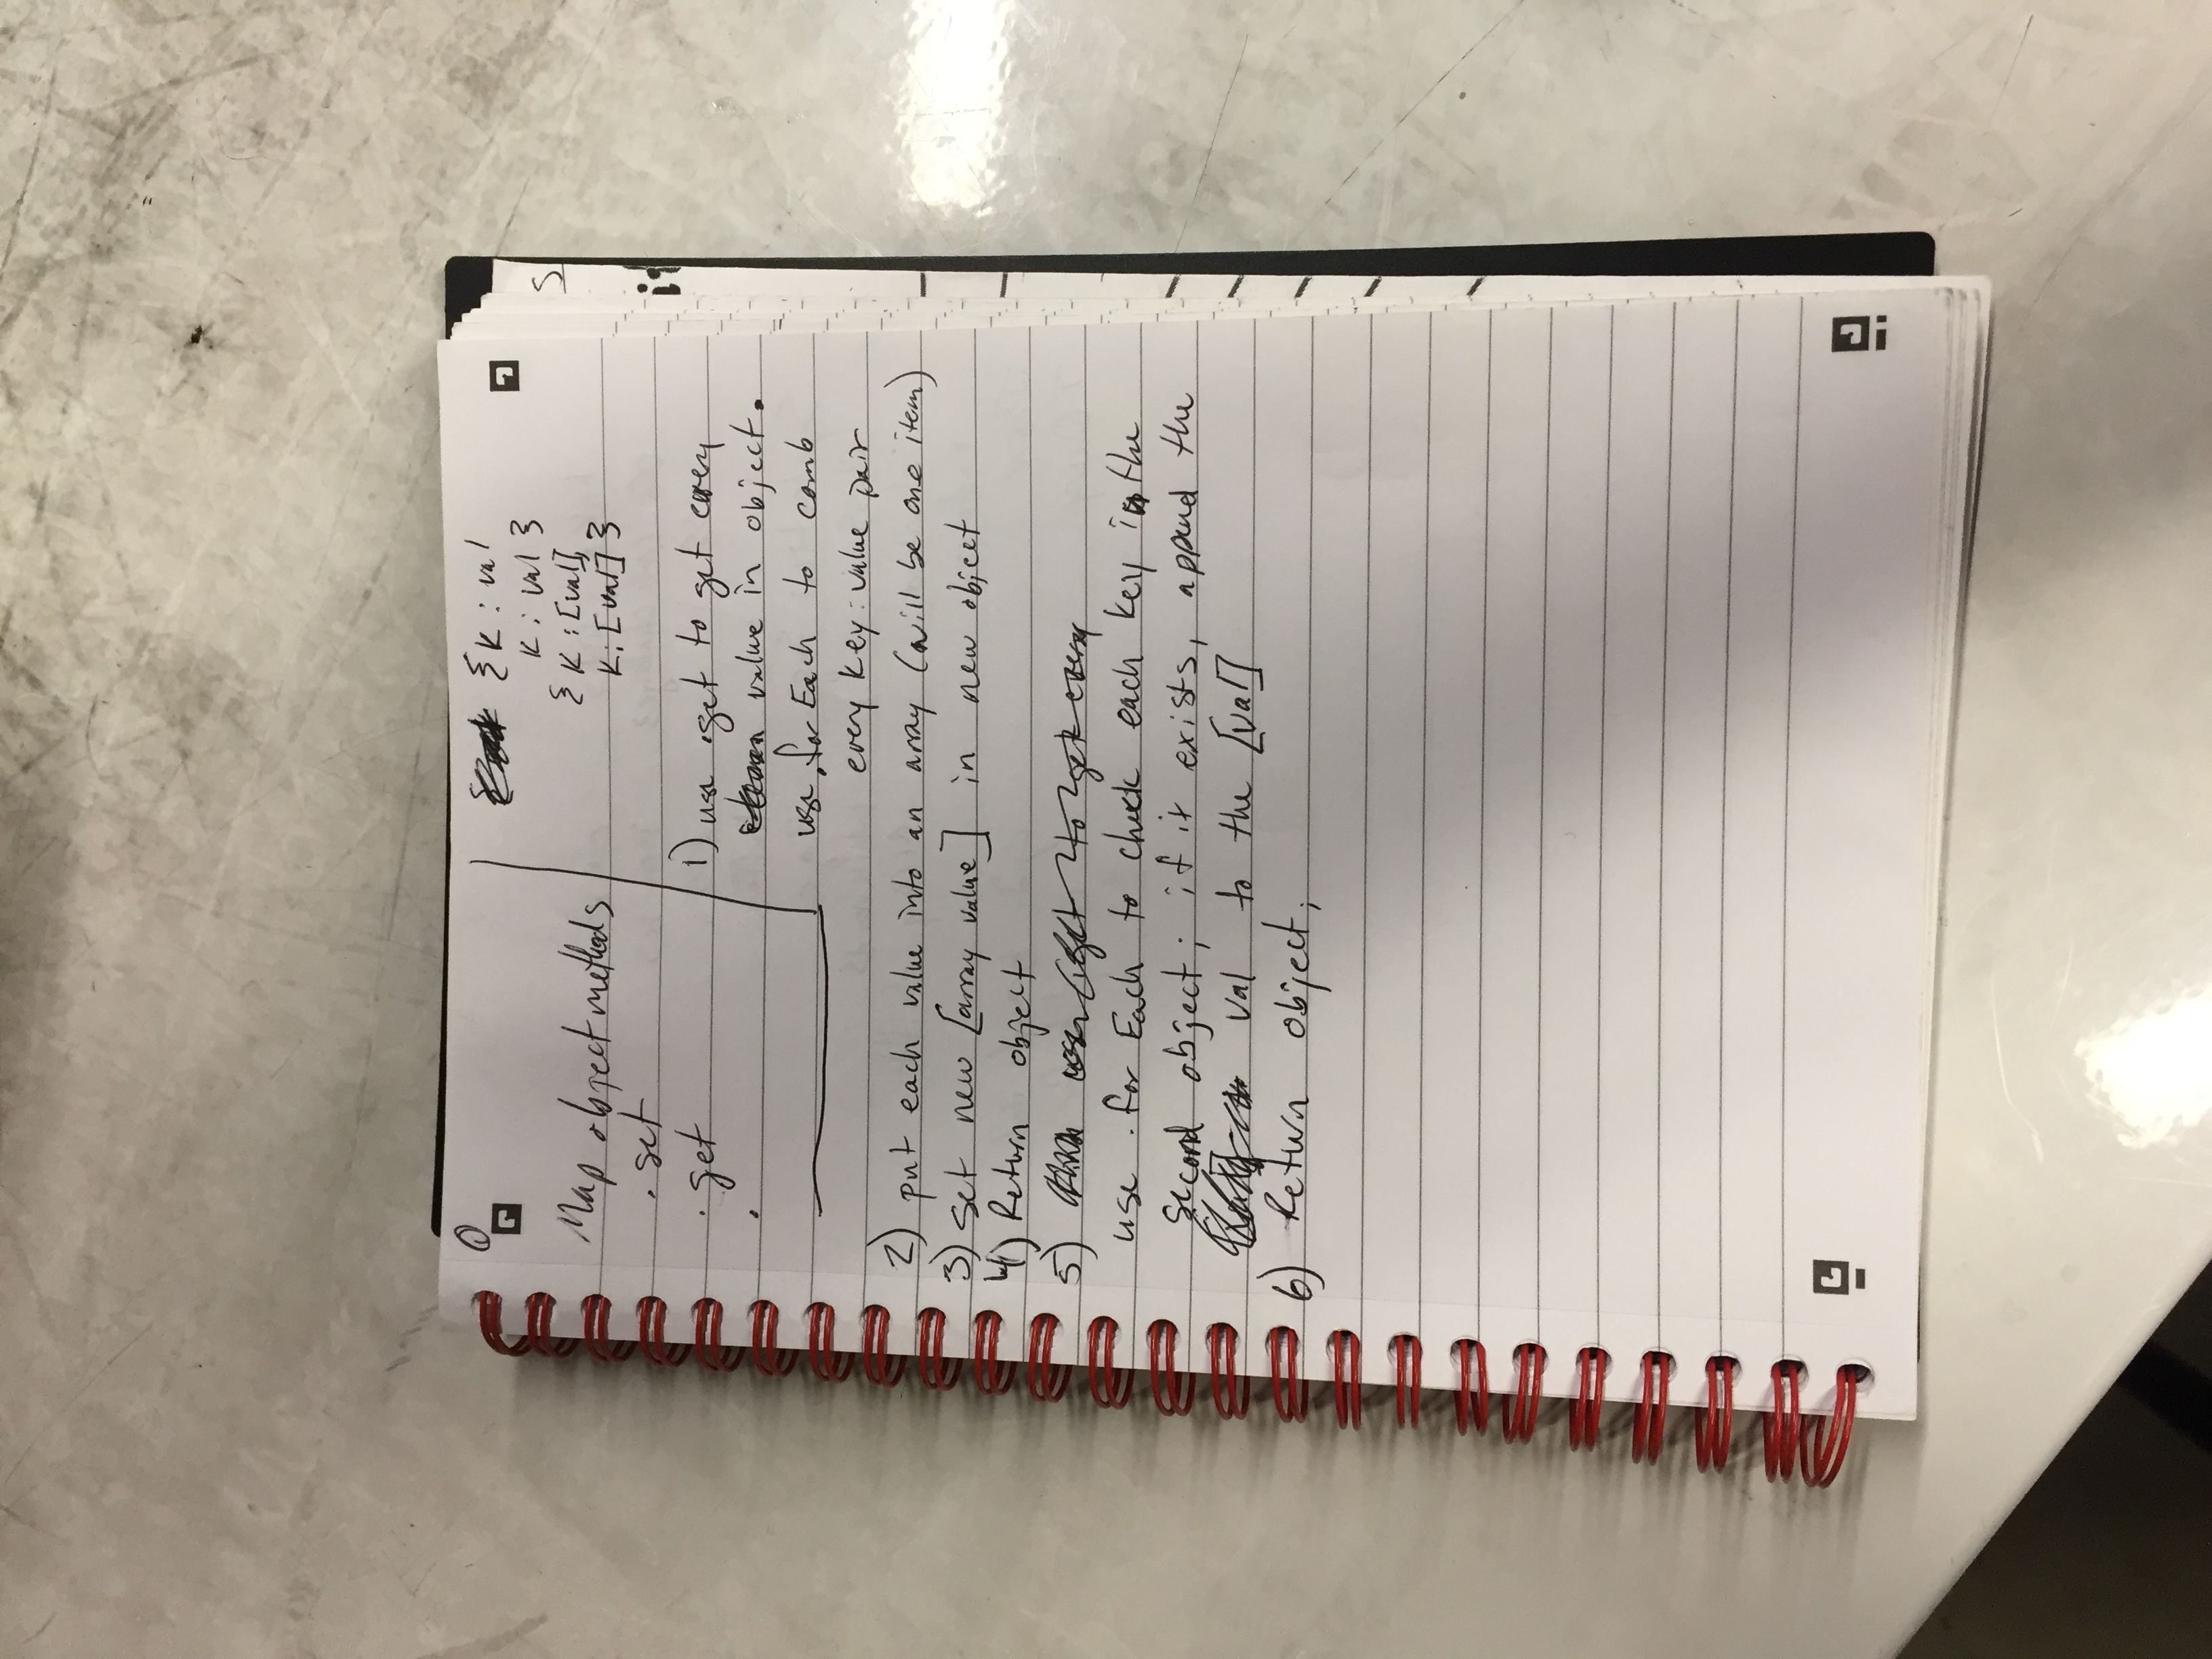 Map object methods
. set
. get
.
{ K : val
K : val }
{ K : [val],
K : [val] }
1) use .get to get every
value in object.
use .forEach to comb
every key : value pair
2) put each value into an array (will be one item)
3) set new [array value] in new object
4) Return object
5)
use .forEach to check each key in the
second object; if it exists, append the
val to the [val]
6) Return object;
S